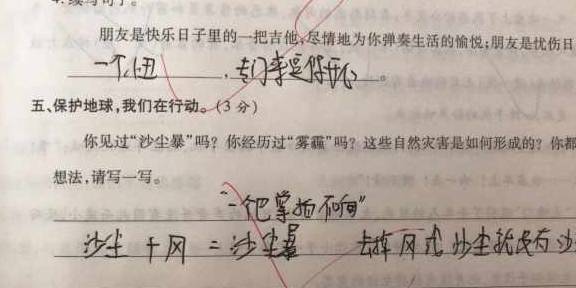 4.续写句子。
朋友是快乐日子里的一把吉他,尽情地为你弹奏生活的愉悦;朋友是忧伤日
一个妞,专门来逗你开心。
五、保护地球,我们在行动。(3分)
你见过“沙尘暴”吗?你经历过“雾霾”吗?这些自然灾害是如何形成的?你都
想法,请写一写。
“一把掌拍不响”
沙尘+风=沙尘暴 去掉风或沙尘就没有沙